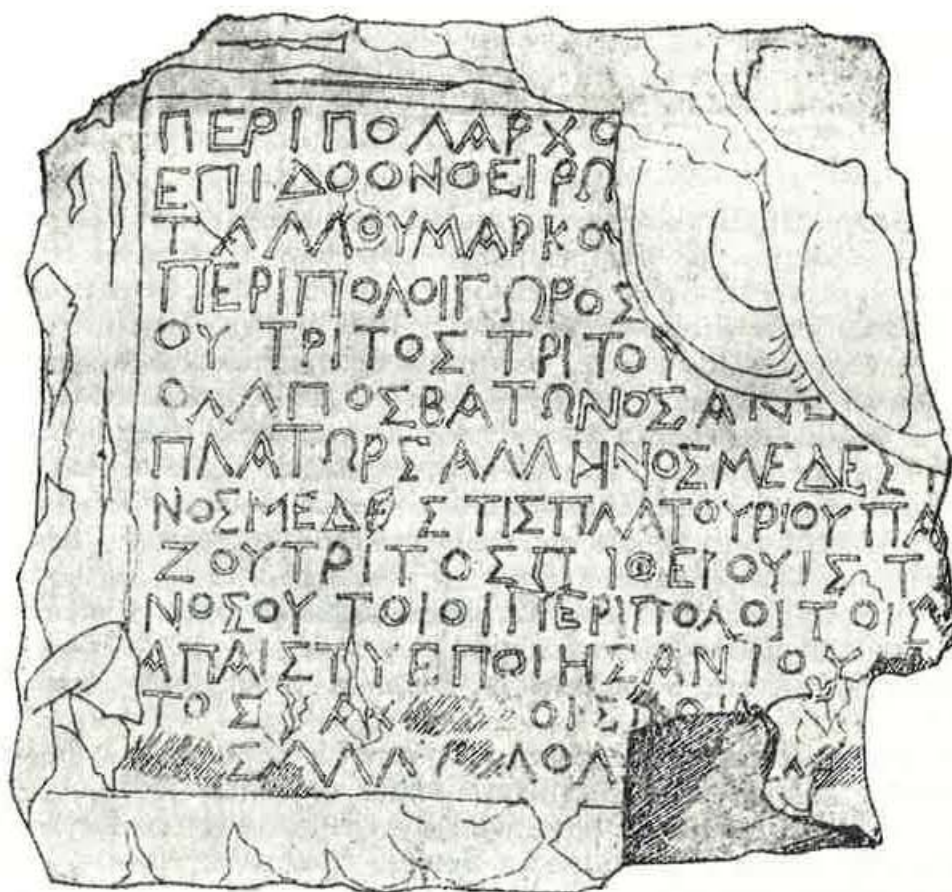 ΠΕΡΙΠΟΛΑΡΧΟ
ΕΠΙΔΟΟΝΟΕΙΡΩ
ΤΑΛΛΟΥΜΑΡΚΟΥ
ΠΕΡΙΠΟΛΟΙΓΩΡΟΣ
ΟΥ ΤΡΙΤΟΣ ΤΡΙΤΟΥ
ΟΛΛΠΟΣΒΑΤΩΝΟΣΑΝΔ
ΠΛΑΤΩΡΣΑΛΛΗΝΟΣΜΕΔΕΣΤ
ΝΟΣΜΕΔΕ ΣΤΙΣΠΛΑΤΟΥΡΙΟΥΠΑ
ΖΟΥΤΡΙΤΟΣΠΙΘΕΙΟΥΙΣΤ
ΝΟΣΟΥΤΟΙΟΙΠΕΡΙΠΟΛΟΙΤΟΙΣ
ΑΠΑΙΣΤΥΕΠΟΙΗΣΑΝΙΟΥ